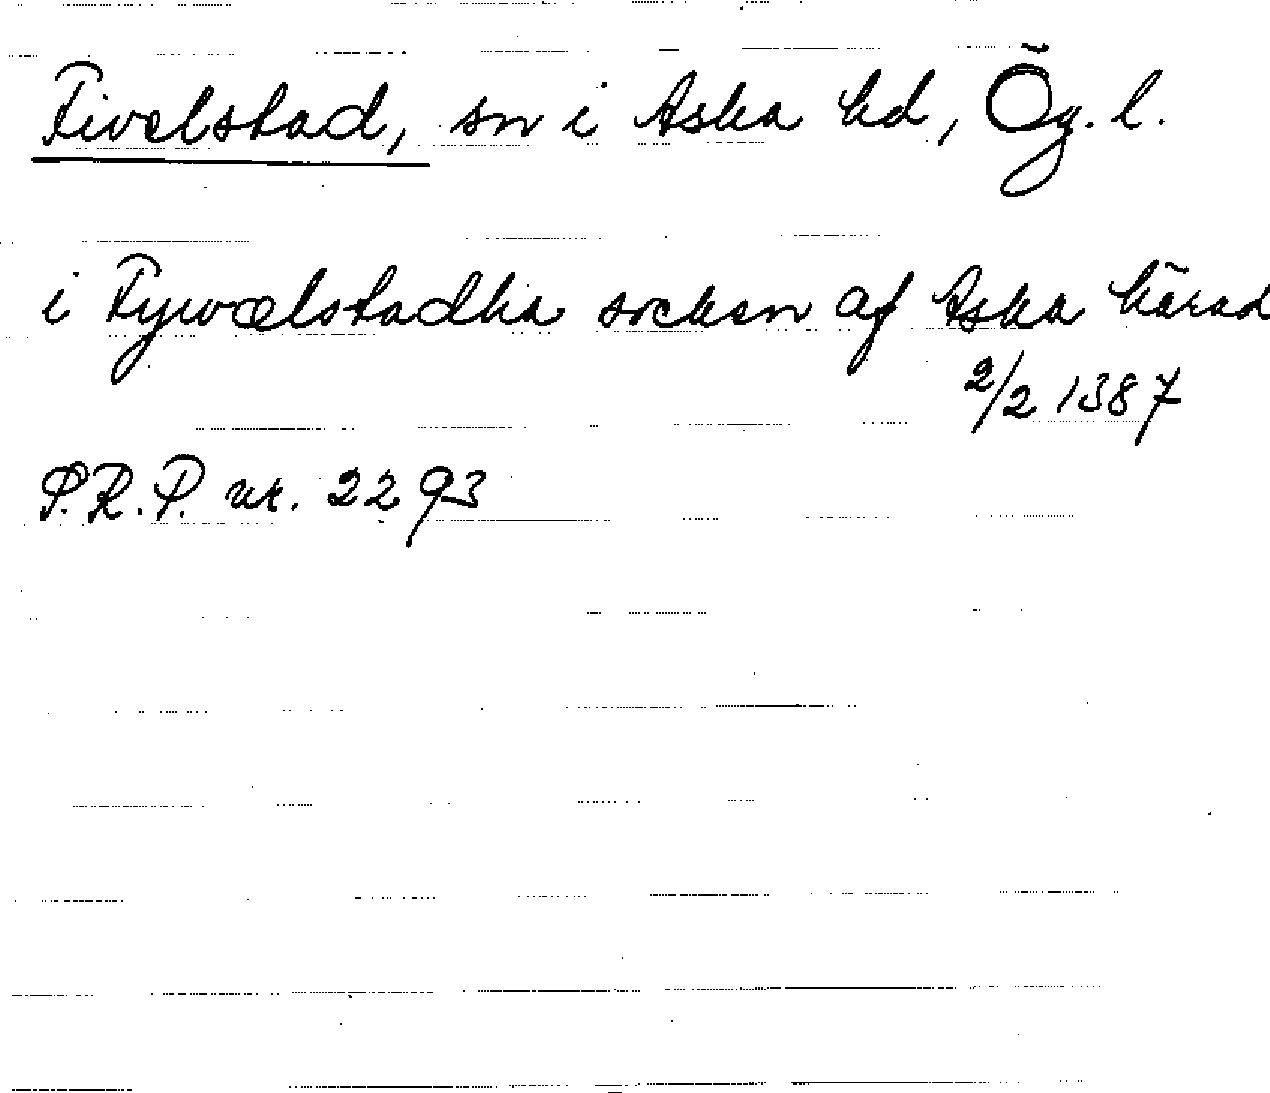 Fivelstad, sn i Aska hd, Ög. l.
i Fywælstadha socken af Aska härad
2/2 1387
P.R.P. nr. 2293